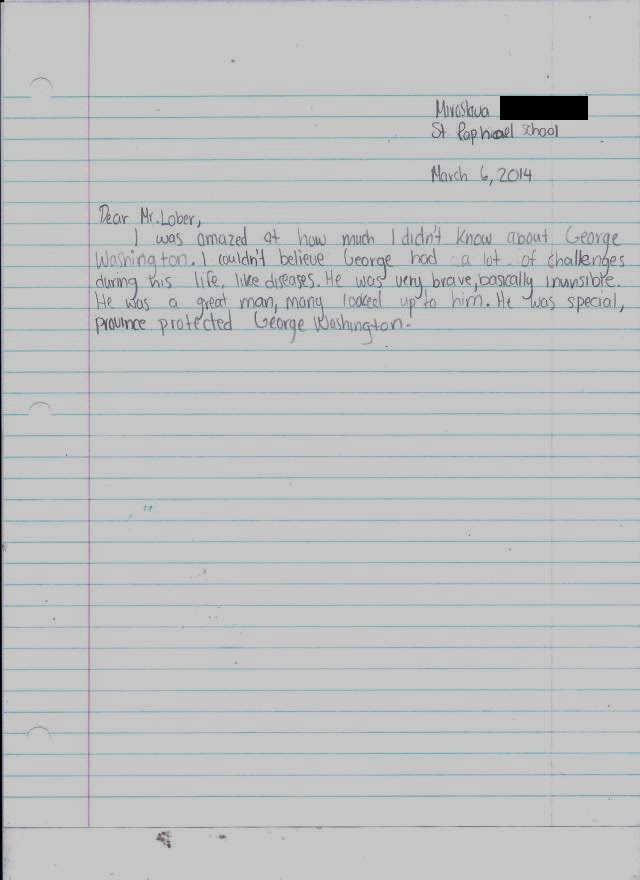 Miroslava
St Raphael School
March 6, 2014
Dear Mr. Lober,
I was amazed at how much I didn't know about George
Washington. I couldn't believe George had a lot of challenges
during this life, like diseases. He was very brave, basically invinsible.
He was a great man, many looked up to him. He was special,
province protected George Washington.